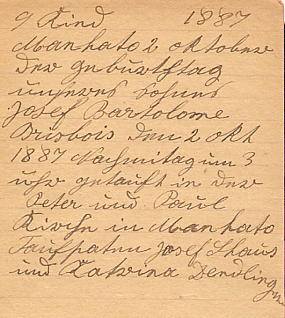 9 Kind 1887
Manhato 2 oktober
der geburthtag
unseres sohnes
Josef Bartolome
Brisbois den 2 okt
1887 Nachmitag um 3
uhr getauft in der
Peter und Paul
Kirche in Manhato
Taufpaten Josef
und Katrina Dendlinger